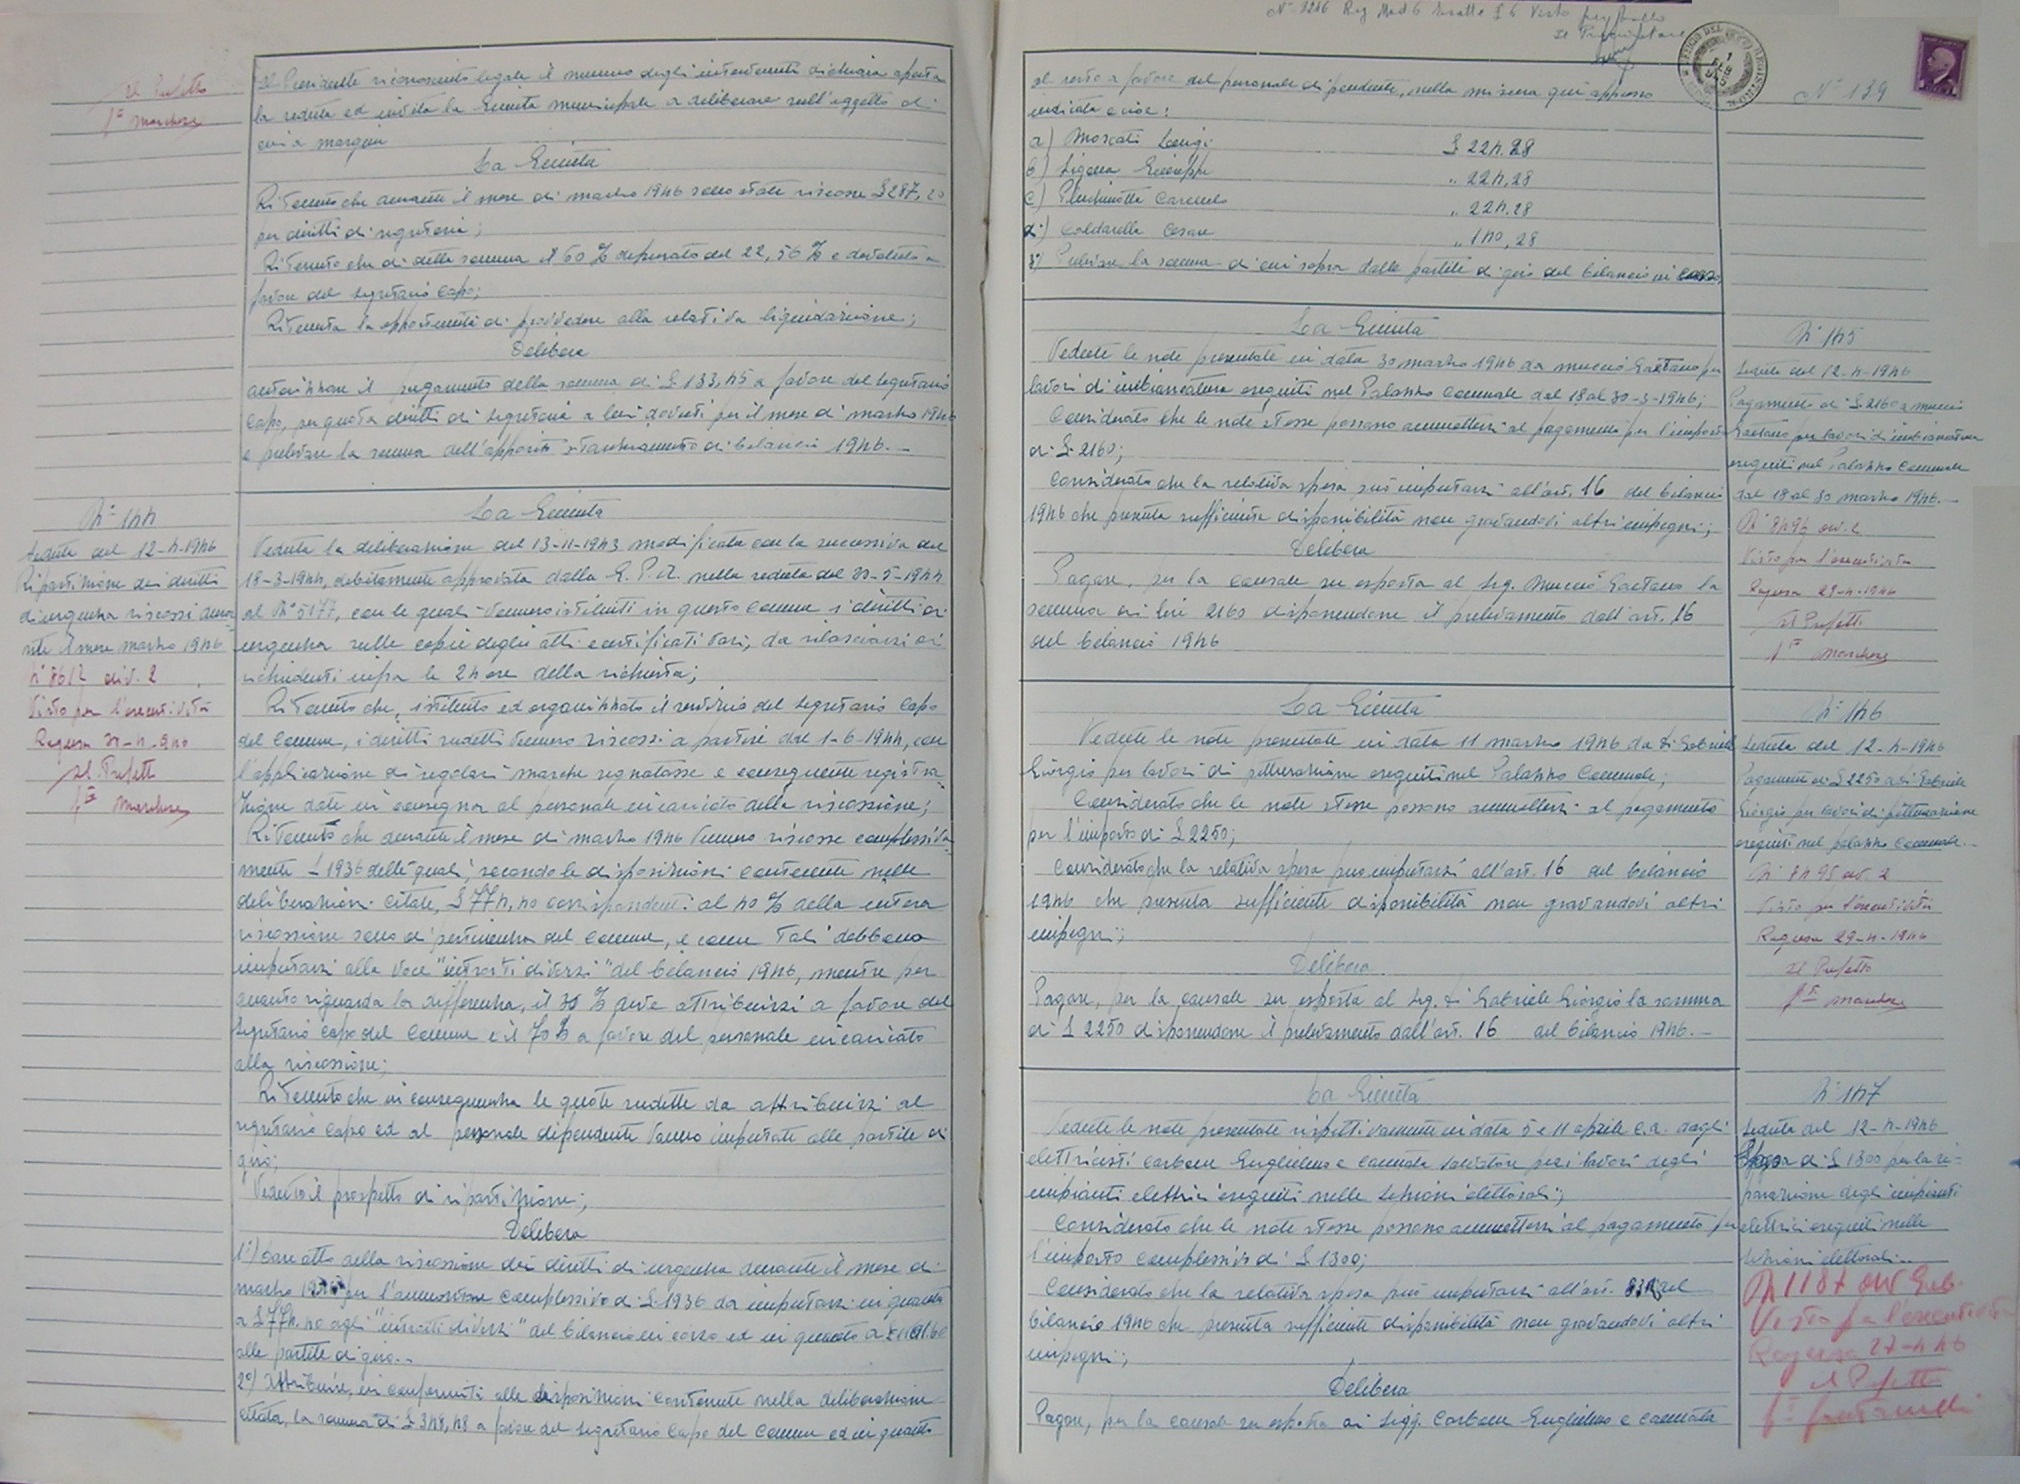 Il Prefetto
Fto Marchese
Il Presidente riconosciuto legale il numero degli intervenuti dichiara aperta
la seduta ed invita la Giunta municipale a deliberare sull'oggetto di
cui a margine
La Giunta
Ritenuto che durante il mese di marzo 1946 sono state riscosse £ 287,20
per diritti di segreteria;
Ritenuto che di detta somma il 60 % depurato del 22,56 % è devoluto a
favore del Segretario Capo;
Ritenuta la opportunità di provvedere alla relativa liquidazione;
Delibera
autorizzare il pagamento della somma di £ 133,45 a favore del Segretario
Capo, per quota diritti di segreteria a lui dovuti per il mese di marzo 1946
e prelevare la somma dell'apposito stanziamento di bilancio 1946.-
N° 144
Seduta del 12-4-1946
Ripartizione dei diritti
di urgenza riscossi duran
te il mese marzo 1946
N° 8612 div. 2
Visto per l'esecutività
Ragusa 30-4-946
Il Prefetto
Fto Marchese
La Giunta
Veduta la deliberazione del 13-11-1943 modificata con la successiva del
18-3-1944, debitamente approvata dalla G. P. A. nella seduta del 30-5-1944
al N° 5177, con le quali vennero istituiti in questo Comune i diritti di
urgenza sulle copie degli atti e certificati vari, da rilasciarsi ai
richiedenti infra le 24 ore della richiesta;
Ritenuto che, istituito ed organizzato il servizio dal Segretario Capo
del Comune, i diritti sudetti vennero riscossi a partire dal 1-6-1944, con
l'applicazione di regolari marche segnatasse e conseguente registra
zione date in consegna al personale incaricato della riscossione;
Ritenuto che durante il mese di marzo 1946 vennero riscosse complessiva
mente £ 1936 delle quali, secondo le disposizioni contenute nelle
deliberazioni citate, £ 774,40 corrispondenti al 40 % della intera
riscossione sono di pertinenza del Comune, e come tali debbono
imputarsi alla voce "introiti diversi" del bilancio 1946, mentre per
quanto riguarda la differenza, il 30 % deve attribuirsi a favore del
Segretario Capo del Comune e il 70 % a favore del personale incaricato
alla riscossione;
Ritenuto che in conseguenza le quote sudette da attribuirsi al
segretario Capo ed al personale dipendente vanno imputate alle partite di
giro;
Veduto il prospetto di ripartizione;
Delibera
1°) Dare atto della riscossione dei diritti di urgenza durante il mese di
marzo per l'ammontare complessivo di £ 1936 da imputarsi in quanto
a £ 774.40 agli "introiti diversi" del bilancio in corso ed in quanto a £ 1161.60
alle partite di giro.-
2°) Attribuire, in conformità alle disposizioni contenute nella deliberazione
citata, la somma di £ 348,48 a favore del Segretario Capo del Comune ed in quanto
N° 3286 Reg Mod 6 Esatte £ 6 Visto per bollo
Il Procuratore
N° 139
al resto a favore del personale dipendente, nella misura qui appresso
indicata e cioè:
a) Moscati Luigi £ 224.28
b) Ligama Giuseppe " 224,28
c) Pluchinotta Carmelo " 224.28
d) Coldarella Cesare " 140,28
3°) Prelevare la somma di cui sopra dalle partite di giro del bilancio in corso
La Giunta
Vedute le note presentate in data 30 marzo 1946 da Muccio Gaetano per
lavori di imbiancatura eseguiti nel Palazzo Comunale dal 18 al 30-3-1946;
Considerato che le note stesse possono ammettersi al pagamento per l'importo
di £ 2160;
Considerato che la relativa spesa può imputarsi all'art. 16 del bilancio
1946 che presenta sufficiente disponibilità non gravandovi altri impegni;
Delibera
Pagare, per la causale su esposta al Sig. Muccio Gaetano la
somma di lire 2160 disponendone il prelevamento dall'art. 16
del bilancio 1946
N° 145
Seduta del 12-4-1946
Pagamento di £ 2160 a Muccio
Gaetano per lavori di imbiancatura
eseguiti nel Palazzo Comunale
dal 18 al 30 marzo 1946.-
N° 8496 div. 2
Visto per l'esecutività
Ragusa 29-4-1946
Il Prefetto
Fto Marchese
La Giunta
Vedute le note presentate in data 11 marzo 1946 da Di Gabriele
Giorgio per lavori di pitturazione eseguiti nel Palazzo Comunale;
Considerato che le note stesse possono ammettersi al pagamento
per l'importo di £ 2250;
Considerato che la relativa spesa può imputarsi all'art. 16 del bilancio
1946 che presenta sufficiente disponibilità non gravandovi altri
impegni;
Delibera
Pagare, per la causale su esposta al Sig. Di Gabriele Giorgio la somma
di £ 2250 disponendone il prelevamento dall'art. 16 del bilancio 1946.-
N° 146
Seduta del 12-4-1946
Pagamento di £ 2250 a Di Gabriele
Giorgio per lavori di pitturazione
eseguiti nel palazzo Comunale.-
N° 8495 div. 2
Visto per l'esecutività
Ragusa 29-4-1946
Il Prefetto
Fto Marchese
La Giunta
Vedute le note presentate rispettivamente in data 5 e 11 aprile c.a. dagli
elettricisti Carbone Guglielmo e Cannata Salvatore per i lavori degli
impianti elettrici eseguiti nelle Sezioni elettorali;
Considerato che le note stesse possono ammettersi al pagamento per
l'importo complessivo di £ 1300;
Considerato che la relativa spesa può imputarsi all'art. del
bilancio 1946 che presenta sufficiente disponibilità non gravandovi altri
impegni;
Delibera
Pagare, per la causale su esposta ai Sigg. Carbone Guglielmo e Cannata
N° 147
Seduta del 12-4-1946
Spesa di £ 1300 per la ri=
parazione degli impianti
elettrici eseguiti nelle
Sezioni elettorali.-
N 1187 div Gab.
Visto per l'esecutività
Ragusa 27-4-46
Il Prefetto